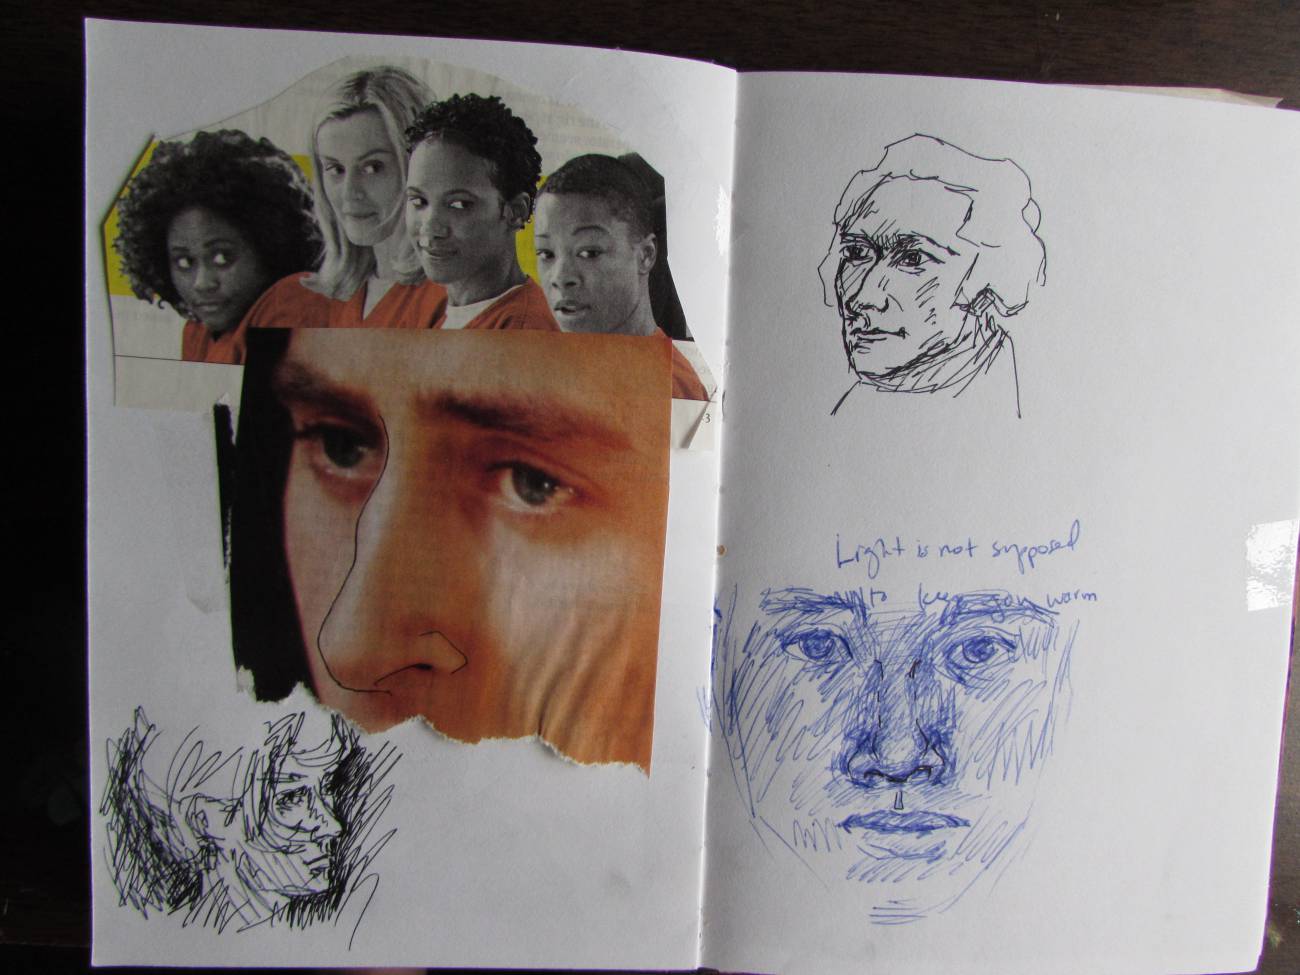 Light is not supposed
to keep you warm
3